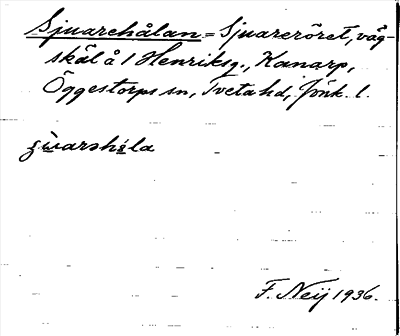 Sjuarehålan = Sjuareröret, väg-
skäl å 1 Henriksg., Kanarp,
Öggestorps sn, Tveta hd, Jönk. l.
ʒùarəhòla
F. Neij 1936.